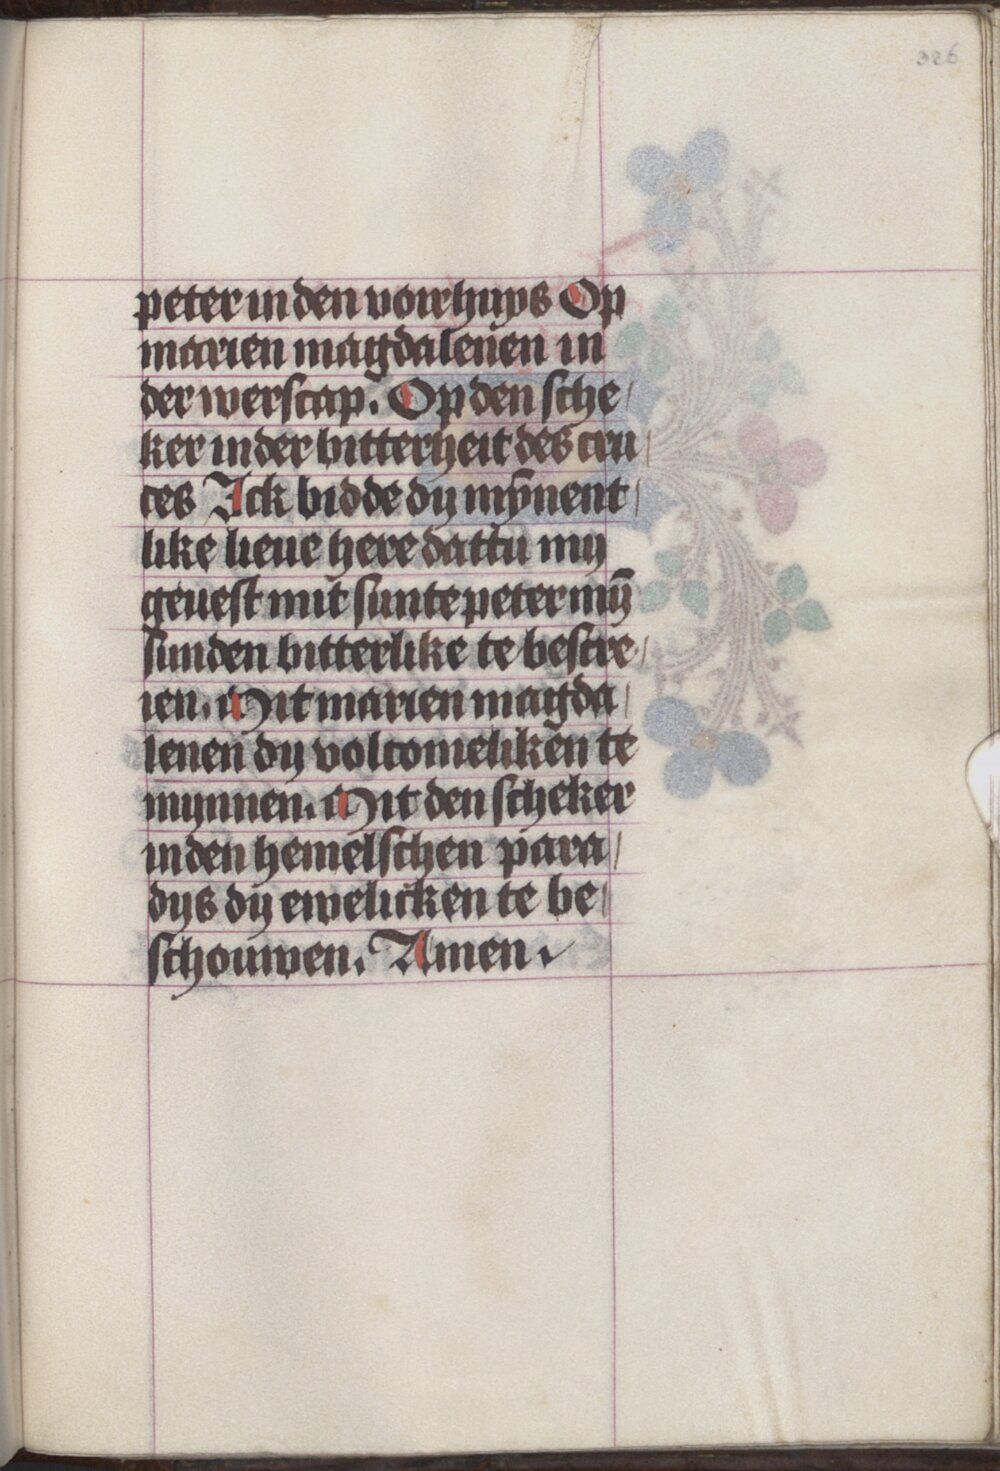 326
peter in den voirhuys Op
marien magdalenen in
der werscap. Op den sche/
ker in der bitterheit des cru/
ces Ick bidde dy mȳnent/
like lieue here dattu my
geuest mit sunte peter mȳ
sunden bitterlike te bescre/
ien. Mit marien magda/
lenen dy volcomeliken te
mynnen. Mit den scheker
in den hemelschen para/
dys dy ewelicken te be/
schouwen. Amen.